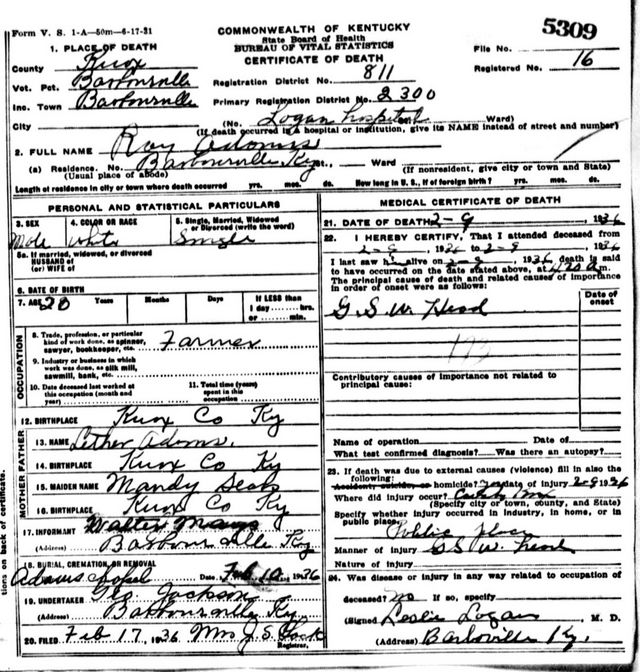 Form V. S. 1-A—50m—6-17-31
COMMONWEALTH OF KENTUCKY
State Board of Health
BUREAU OF VITAL STATISTICS
CERTIFICATE OF DEATH
5309
File No.
Registered No. 16
1. PLACE OF DEATH
County Knox
Vot. Pct. Barbourville
Inc. Town Barbourville
City
Registration District No. 811
Primary Registration District No. 2300
(No. Logan Hospital Ward)
(If death occurred in a hospital or institution, give its NAME instead of street and number)
2. FULL NAME Roy Adams
(a) Residence. No. Barbourville Ky St., Ward
(Usual place of abode) (If nonresident, give city or town and State)
Length of residence in city or town where death occurred yrs. mos. ds. How long in U. S., if of foreign birth? yrs. mos. ds.
PERSONAL AND STATISTICAL PARTICULARS
3. SEX Male
4. COLOR OR RACE White
5. Single, Married, Widowed or Divorced (write the word) Single
5a. If married, widowed, or divorced
HUSBAND of
(or) WIFE of
6. DATE OF BIRTH
7. AGE 20 Years Months Days If LESS than
1 day hrs.
or min.
OCCUPATION
8. Trade, profession, or particular
kind of work done, as spinner,
sawyer, bookkeeper, etc. Farmer
9. Industry or business in which
work was done, as silk mill,
sawmill, bank, etc.
10. Date deceased last worked at
this occupation (month and
year)
11. Total time (years)
spent in this
occupation
12. BIRTHPLACE Knox Co Ky
FATHER
13. NAME Lether Adams
14. BIRTHPLACE Knox Co Ky
MOTHER
15. MAIDEN NAME Mandy
16. BIRTHPLACE Knox Co Ky
17. INFORMANT Walter Mays
(Address) Barbourville Ky
18. BURIAL, CREMATION, OR REMOVAL
Adams Chapel Date Feb 10 1936
19. UNDERTAKER Geo Jackson
Barbourville Ky
20. FILED Feb 17, 1936 Mrs J. S.
Registrar.
MEDICAL CERTIFICATE OF DEATH
21. DATE OF DEATH 2-9 1936
22. I HEREBY CERTIFY, That I attended deceased from
2-9 1936 to 2-9 1936
I last saw h alive on 2-9 1936 death is said
to have occurred on the date stated above, at
The principal cause of death and related causes of importance
in order of onset were as follows:
Date of
onset
G. S. W. Head
Contributory causes of importance not related to
principal cause:
Name of operation Date of
What test confirmed diagnosis? Was there an autopsy?
23. If death was due to external causes (violence) fill in also the
following:
Accident, suicide or homicide? date of injury 2-9 1936
Where did injury occur?
(Specify city or town, county, and State)
Specify whether injury occurred in industry, in home, or in
public place. Public place
Manner of injury G S W Head
Nature of injury
24. Was disease or injury in any way related to occupation of
deceased? no If so, specify
(Signed Leslie Logan M. D.
(Address) Barboville Ky.
tions on back of certificate.